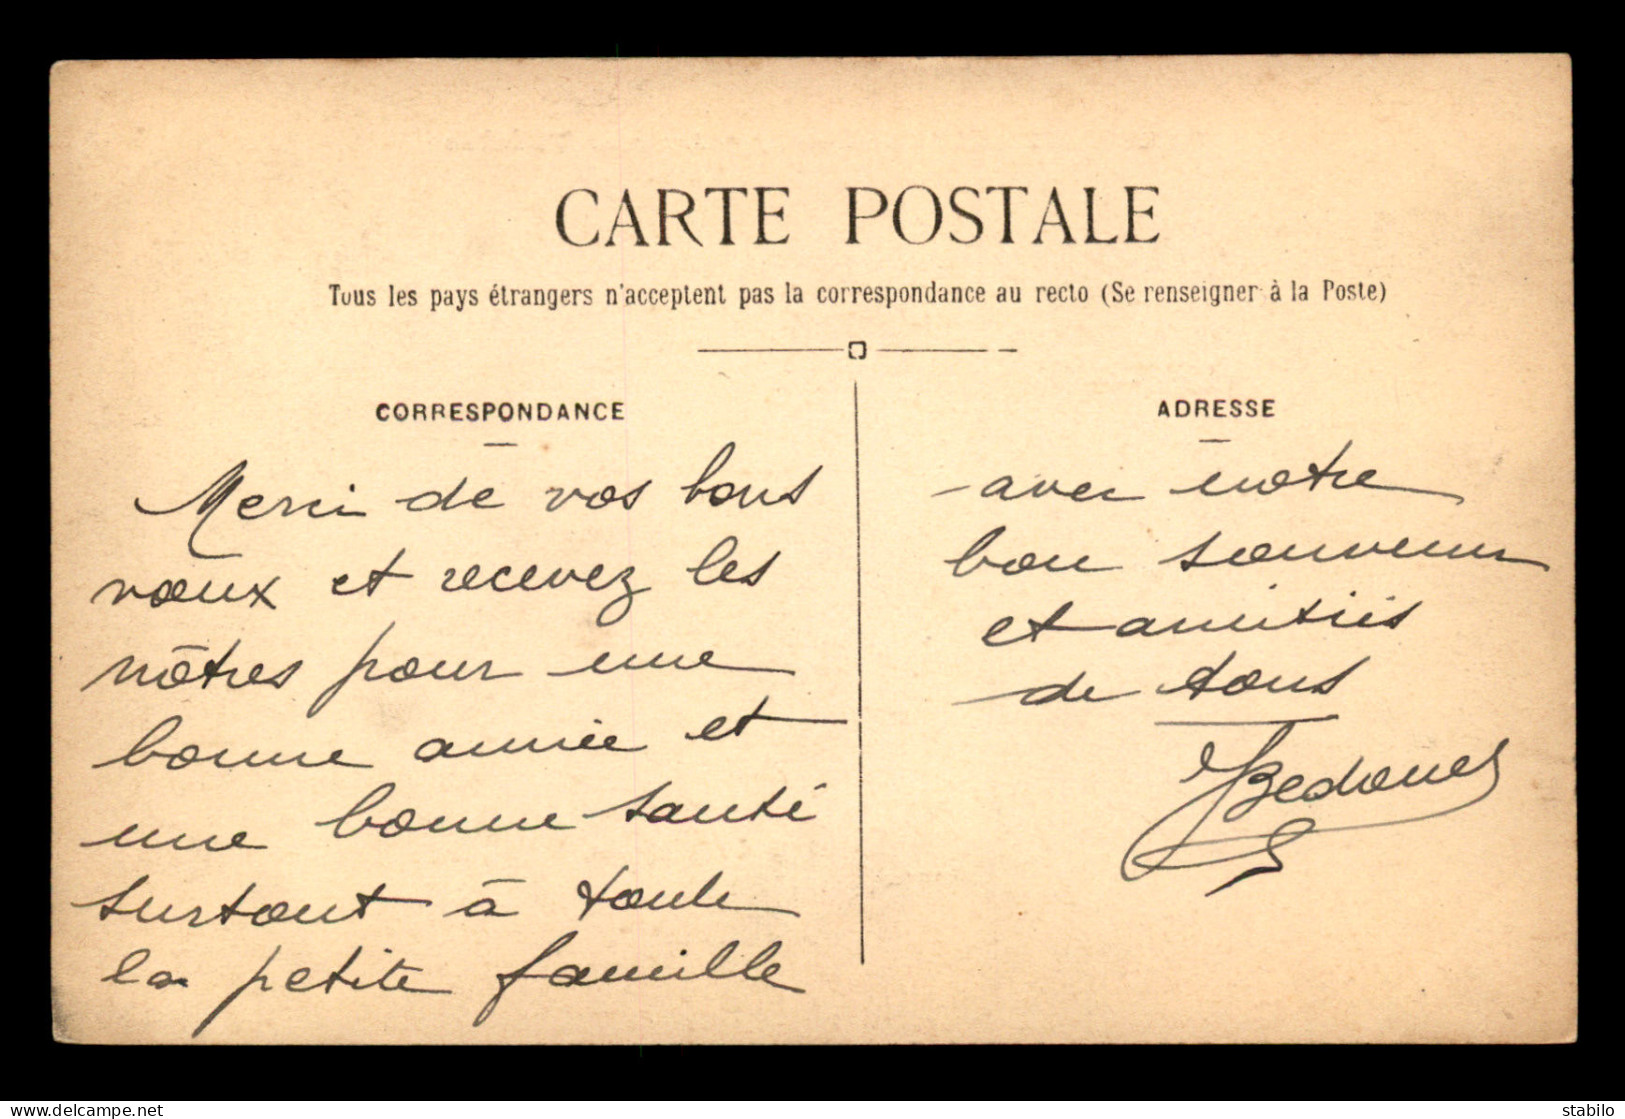 CARTE POSTALE
Tous les pays étrangers n'acceptent pas la correspondance au recto (Se renseigner à la Poste)
CORRESPONDANCE
Merci de vos bons
vœux et recevez les
nôtres pour une
bonne année et
une bonne santé
surtout à toute
la petite famille
ADRESSE
avec notre
bon souvenir
et amitiés
de tous
delcampe.net
stabilo